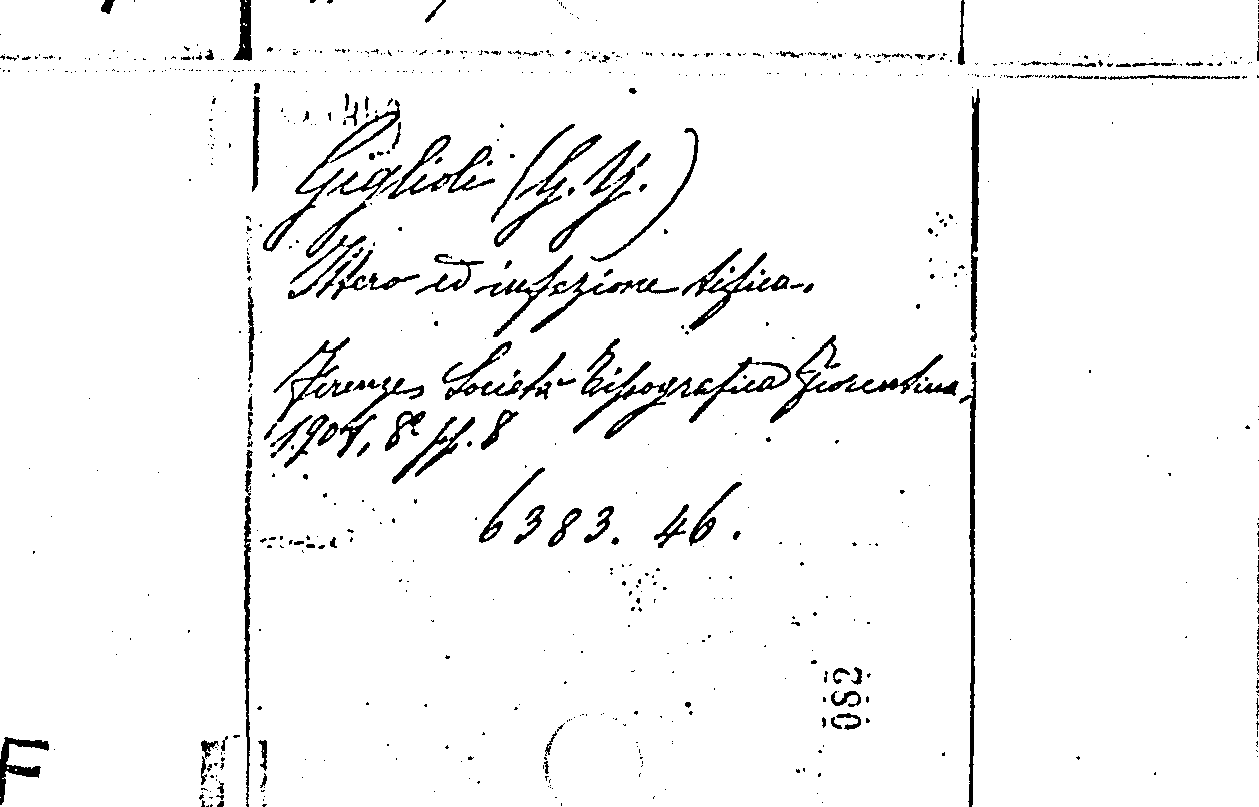 Giglioli (G. Y.)
Ittero ed infezione tifica.
Firenze, Società Tipografica Fiorentina,
1904, 8º pp. 8
6383. 46.
082
F